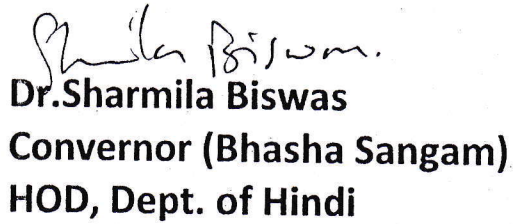 Sharmila Biswas.
Dr.Sharmila Biswas
Convernor (Bhasha Sangam)
HOD, Dept. of Hindi